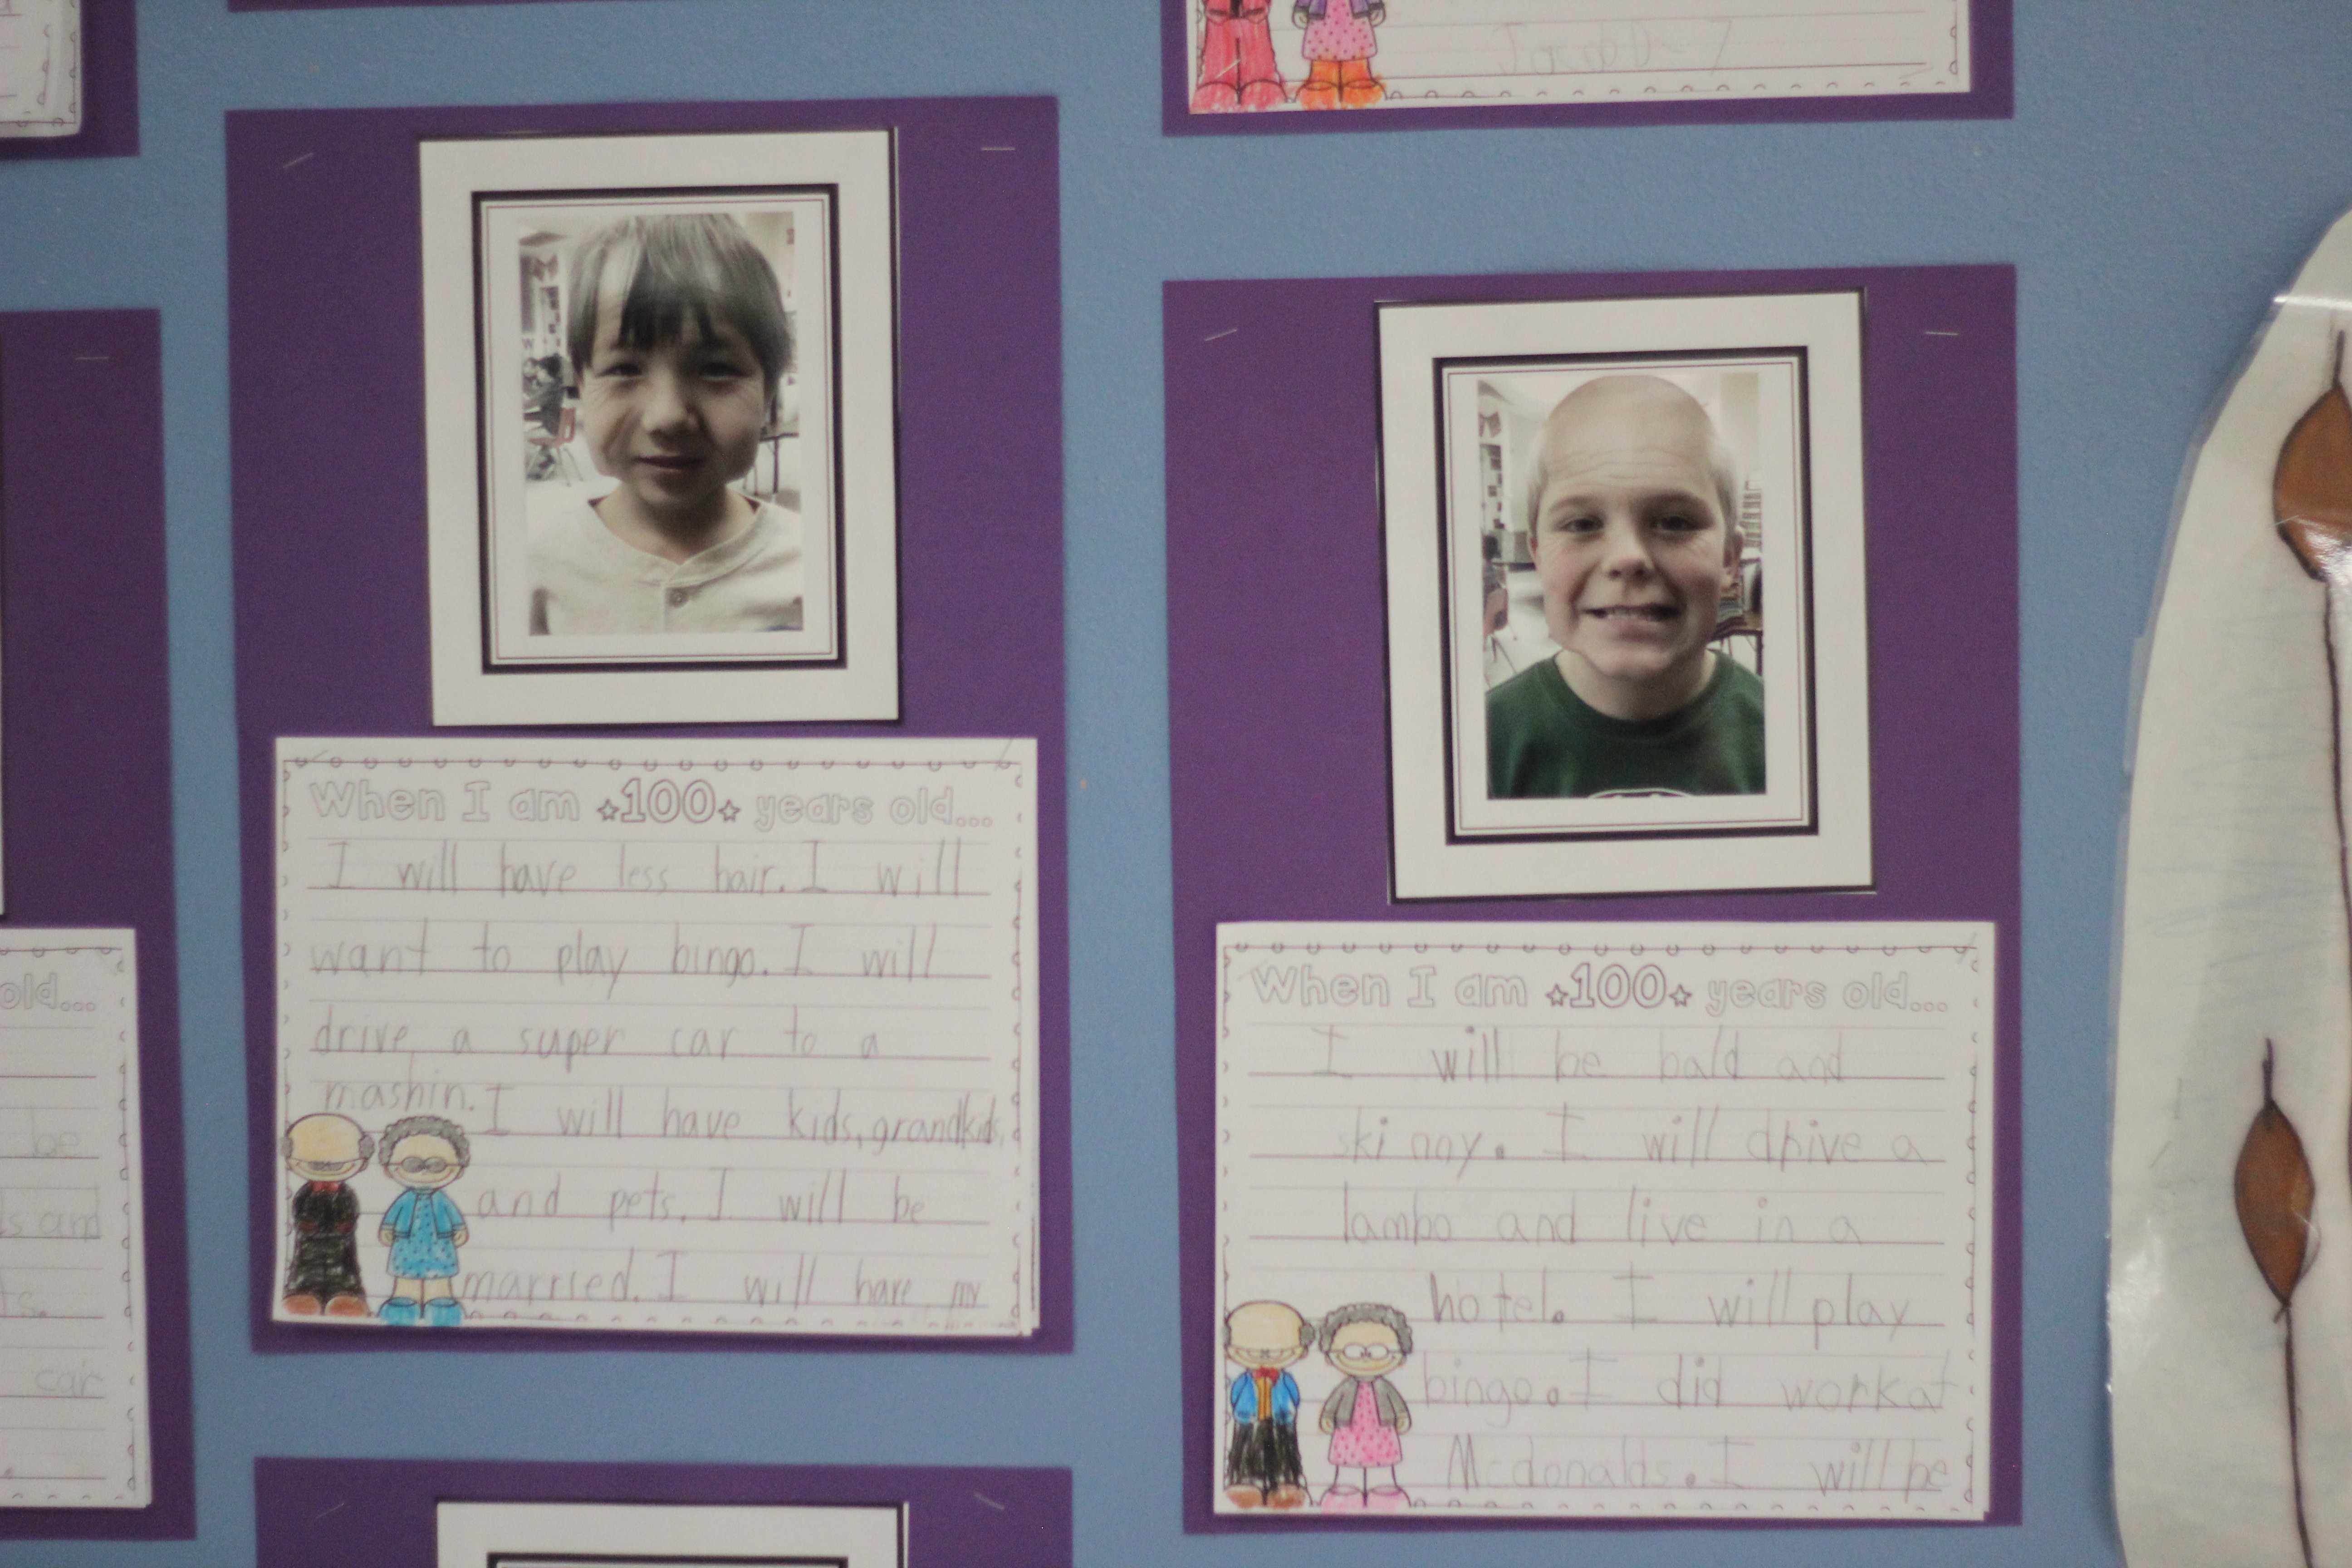 Jacob D-7
When I am 100 years old...
I will have less hair. I will
want to play bingo. I will
drive a super car to a
mashin. I will have kids, grandkids,
and pets. I will be
married. I will have my
When I am 100 years old...
I will be bald and
skinny. I will drive a
lambo and live in a
hotel. I will play
bingo. I did work at
Mcdonalds. I will be
old...
be
s am
ts.
car